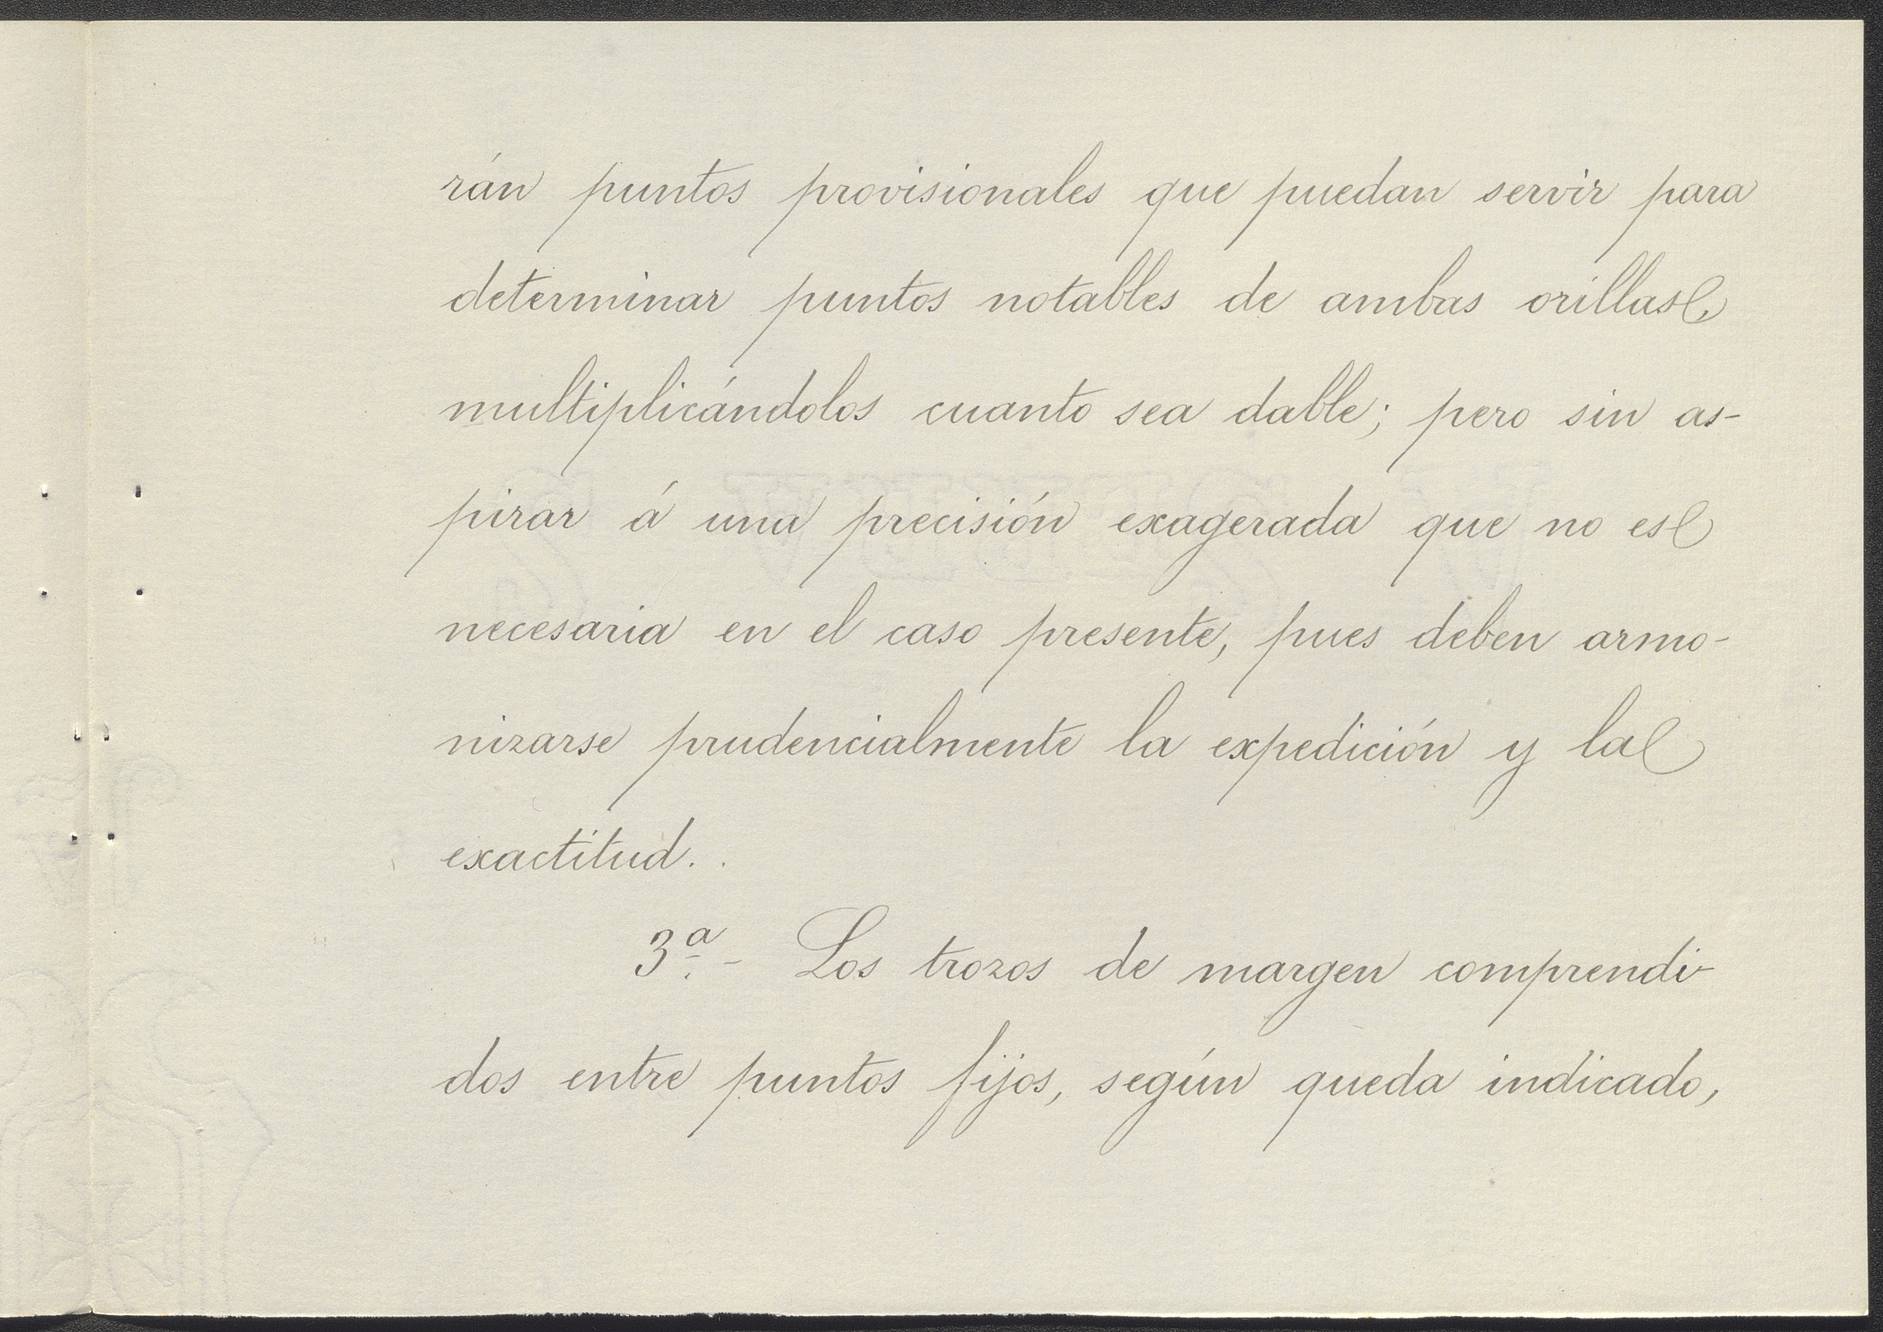 rán puntos provisionales que puedan servir para
determinar puntos notables de ambas orillas,
multiplicándolos cuanto sea dable; pero sin as-
pirar á una precisión exagerada que no es
necesaria en el caso presente, pues deben armo-
nizarse prudencialmente la expedición y la
exactitud.
3ª.- Los trozos de margen comprendi-
dos entre puntos fijos, según queda indicado,